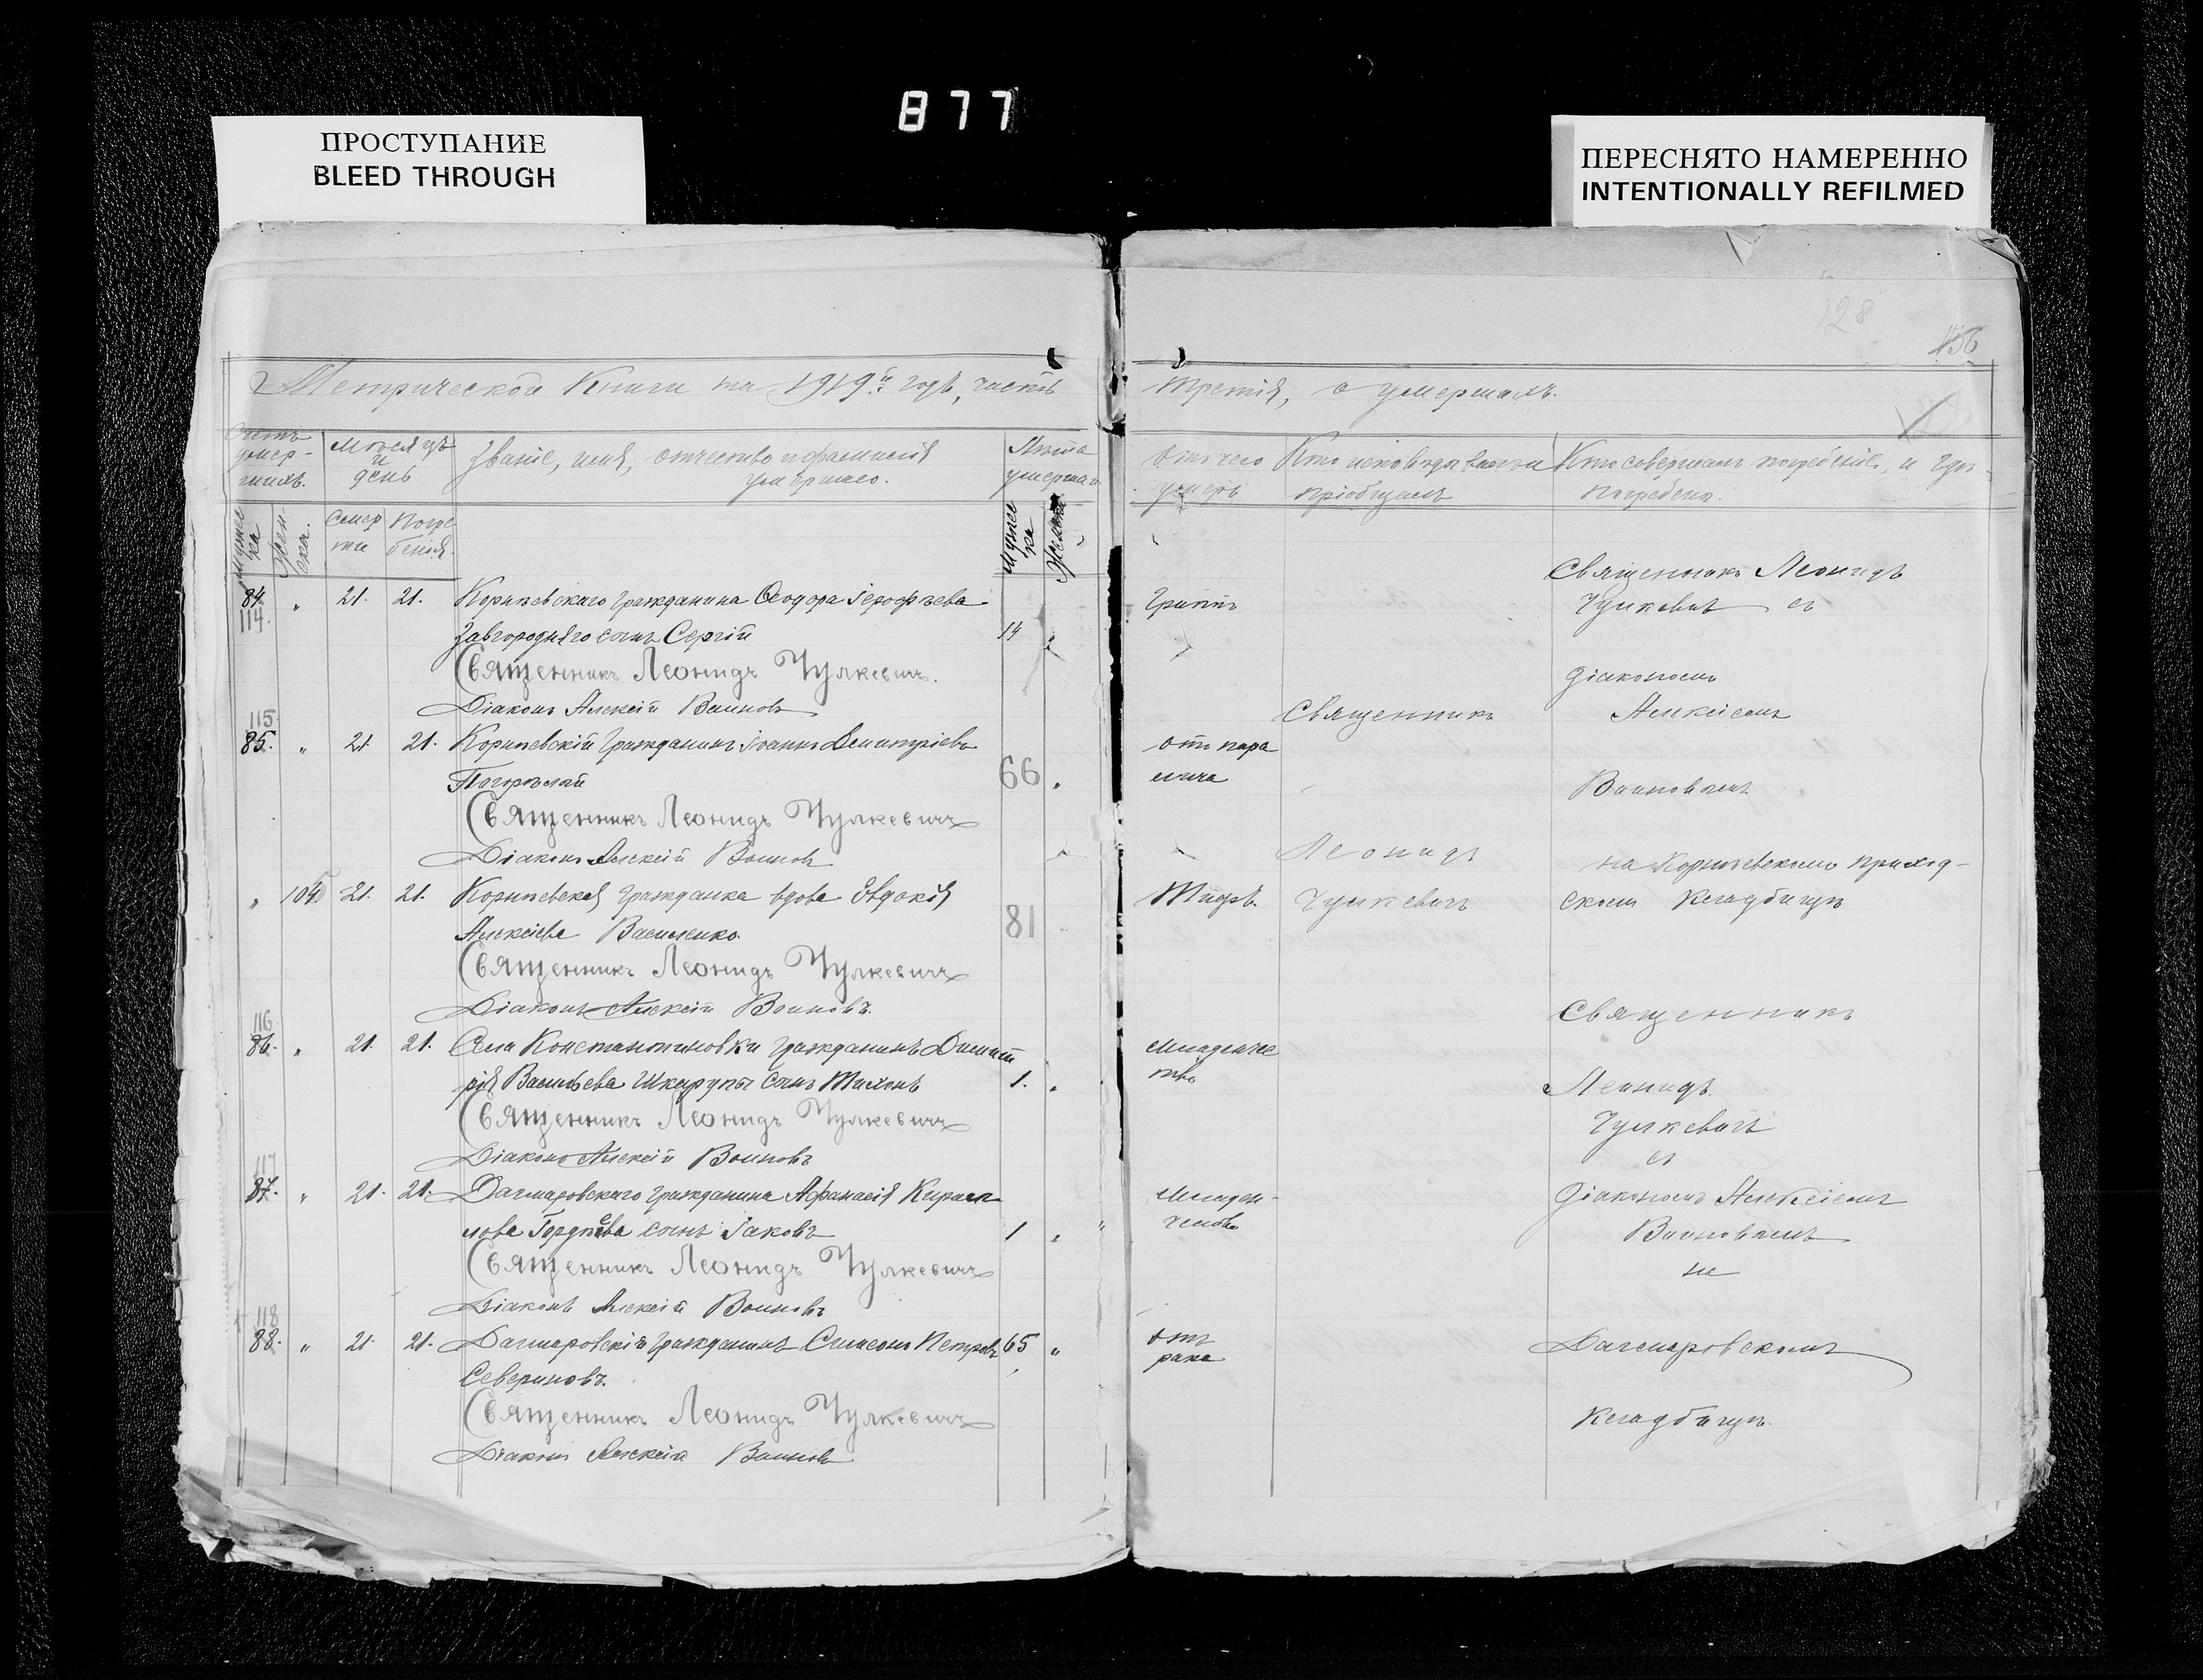 877
ПРОСТУПАНИЕ
BLEED THROUGH
ПЕРЕСНЯТО НАМЕРЕННО
INTENTIONALLY REFILMED
128
156
Метрической Книги на 1919й годъ, часть
третія, о умершихъ.
Счетъ умер-шихъ.
Мѣсяцъ и день
Званіе, имя, отчество и фамилія умершаго.
Лѣта умершаго
Отъ чего умеръ
Кто исповѣдывалъ и пріобщалъ
Кто совершалъ погребеніе, и гдѣ погребены.
Мужеска
Женска.
Смерти
Погребенія.
Мужеска
Женска
84. " 21. 21. Корнѣевскаго гражданина Ѳеодора Іерофѣева
114.
Завгородняго сынъ Сергій 14 "
Священникъ Леонидъ Чулкевичъ.
Діаконъ Алексій Воиновъ
115
85. " 21. 21. Корнѣевскій гражданинъ Іоаннъ Димитріевъ
Погорѣлый 66 "
Священникъ Леонидъ Чулкевичъ
Діаконъ Алексій Воиновъ
" 104 21. 21. Корнѣевская гражданка вдова Евдокія
Алексіева Василенко. 81
Священникъ Леонидъ Чулкевичъ
Діаконъ Алексій Воиновъ.
116
86. " 21. 21. Села Константиновки гражданинъ Димит
рія Васильева Шкарупы сынъ Тихонъ 1. "
Священникъ Леонидъ Чулкевичъ
Діаконъ Алексій Воиновъ
117
87. " 21. 21. Дагмаровскаго гражданина Афанасія Кирил
лова Гордѣева сынъ Іаковъ 1 "
Священникъ Леонидъ Чулкевичъ
Діаконъ Алексій Воиновъ
118
88. " 21. 21. Дагмаровскій гражданинъ Симеонъ Петровъ 65 "
Севериновъ.
Священникъ Леонидъ Чулкевичъ
Діаконъ Алексій Воиновъ
Гриппъ
отъ пара
лича
Тифъ.
младенчес
тво
младен-
чество
отъ
рака
Священникъ
Леонидъ
Чулкевичъ
Священникъ Леонидъ
Чулкевичъ съ
діакономъ
Алексіемъ
Воиновымъ
на Корнѣевскомъ приход-
скомъ кладбищѣ
Священникъ
Леонидъ
Чулкевичъ
съ
діакономъ Алексіемъ
Воиновымъ
на
Дагмаровскомъ
кладбищѣ.